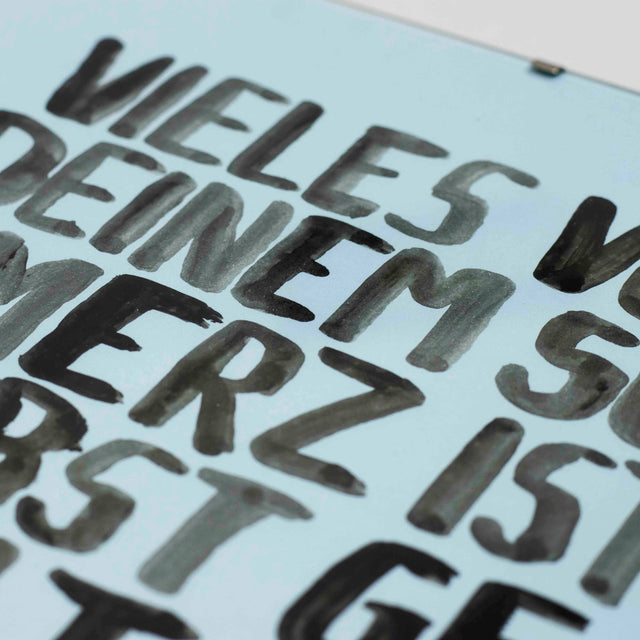 VIELES
DEINEM
MERZ IST
BST GE